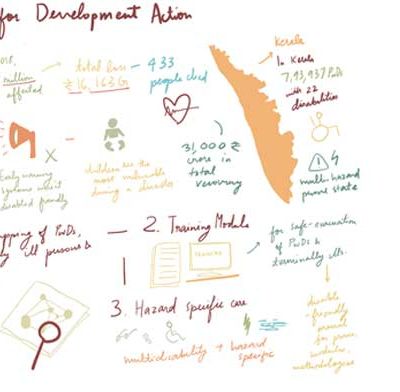 for Development Action
2018,
million
affected
total loss
₹16,163 Cr
433
people died
Kerala
In Kerala
7,93,937 PwDs
with 22
disabilities
X
Early warning
systems weren't
disabled friendly
children are the
most vulnerable
during a disaster
31,000 ₹
crore in
total
recovery
multi hazard
prone state
mapping of PwDs,
ill persons &
2. Training Module
TRAINING
for safe-evacuation
of PwDs &
terminally ills.
3. Hazard specific care
multidisability + hazard
specific
disable
-friendly
manual
methodologies